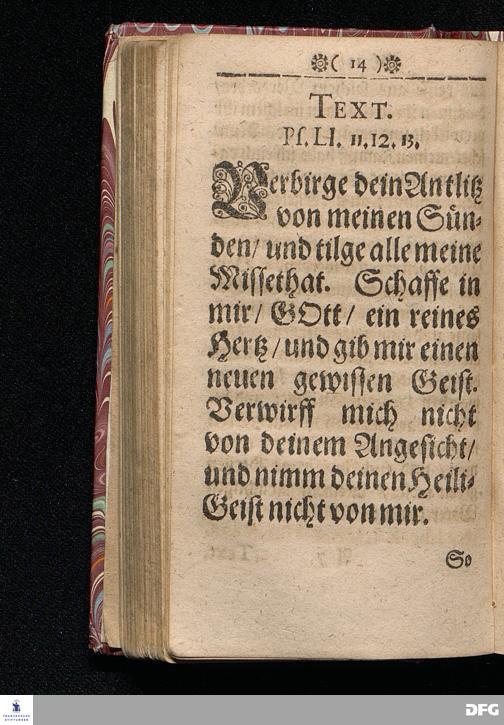 ❁( 14 )❁
TEXT.
Ps. LI. 11. 12. 13.
Verbirge dein Antlitz
von meinen Sün⸗
den/ und tilge alle meine
Missethat. Schaffe in
mir/ GOtt/ ein reines
Hertz/ und gib mir einen
neuen gewissen Geist.
Verwirff mich nicht
von deinem Angesicht/
und nimm deinen Heili⸗
Geist nicht von mir.
So
FRANCKESCHE
STIFTUNGEN
DFG